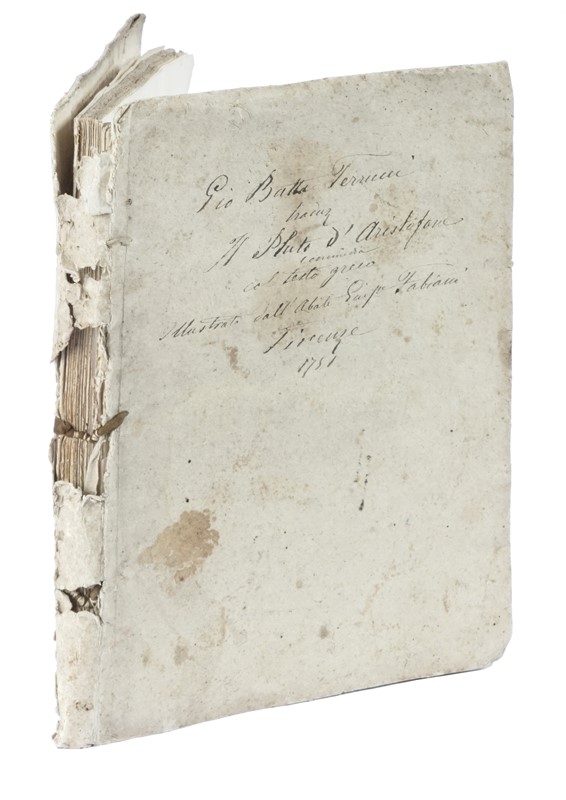 Gio Batta Terrucci
traduz
Il Pluto d'Aristofane
comedia
col testo greco
illustrata dall'Abate Fabiani
Firenze
1751